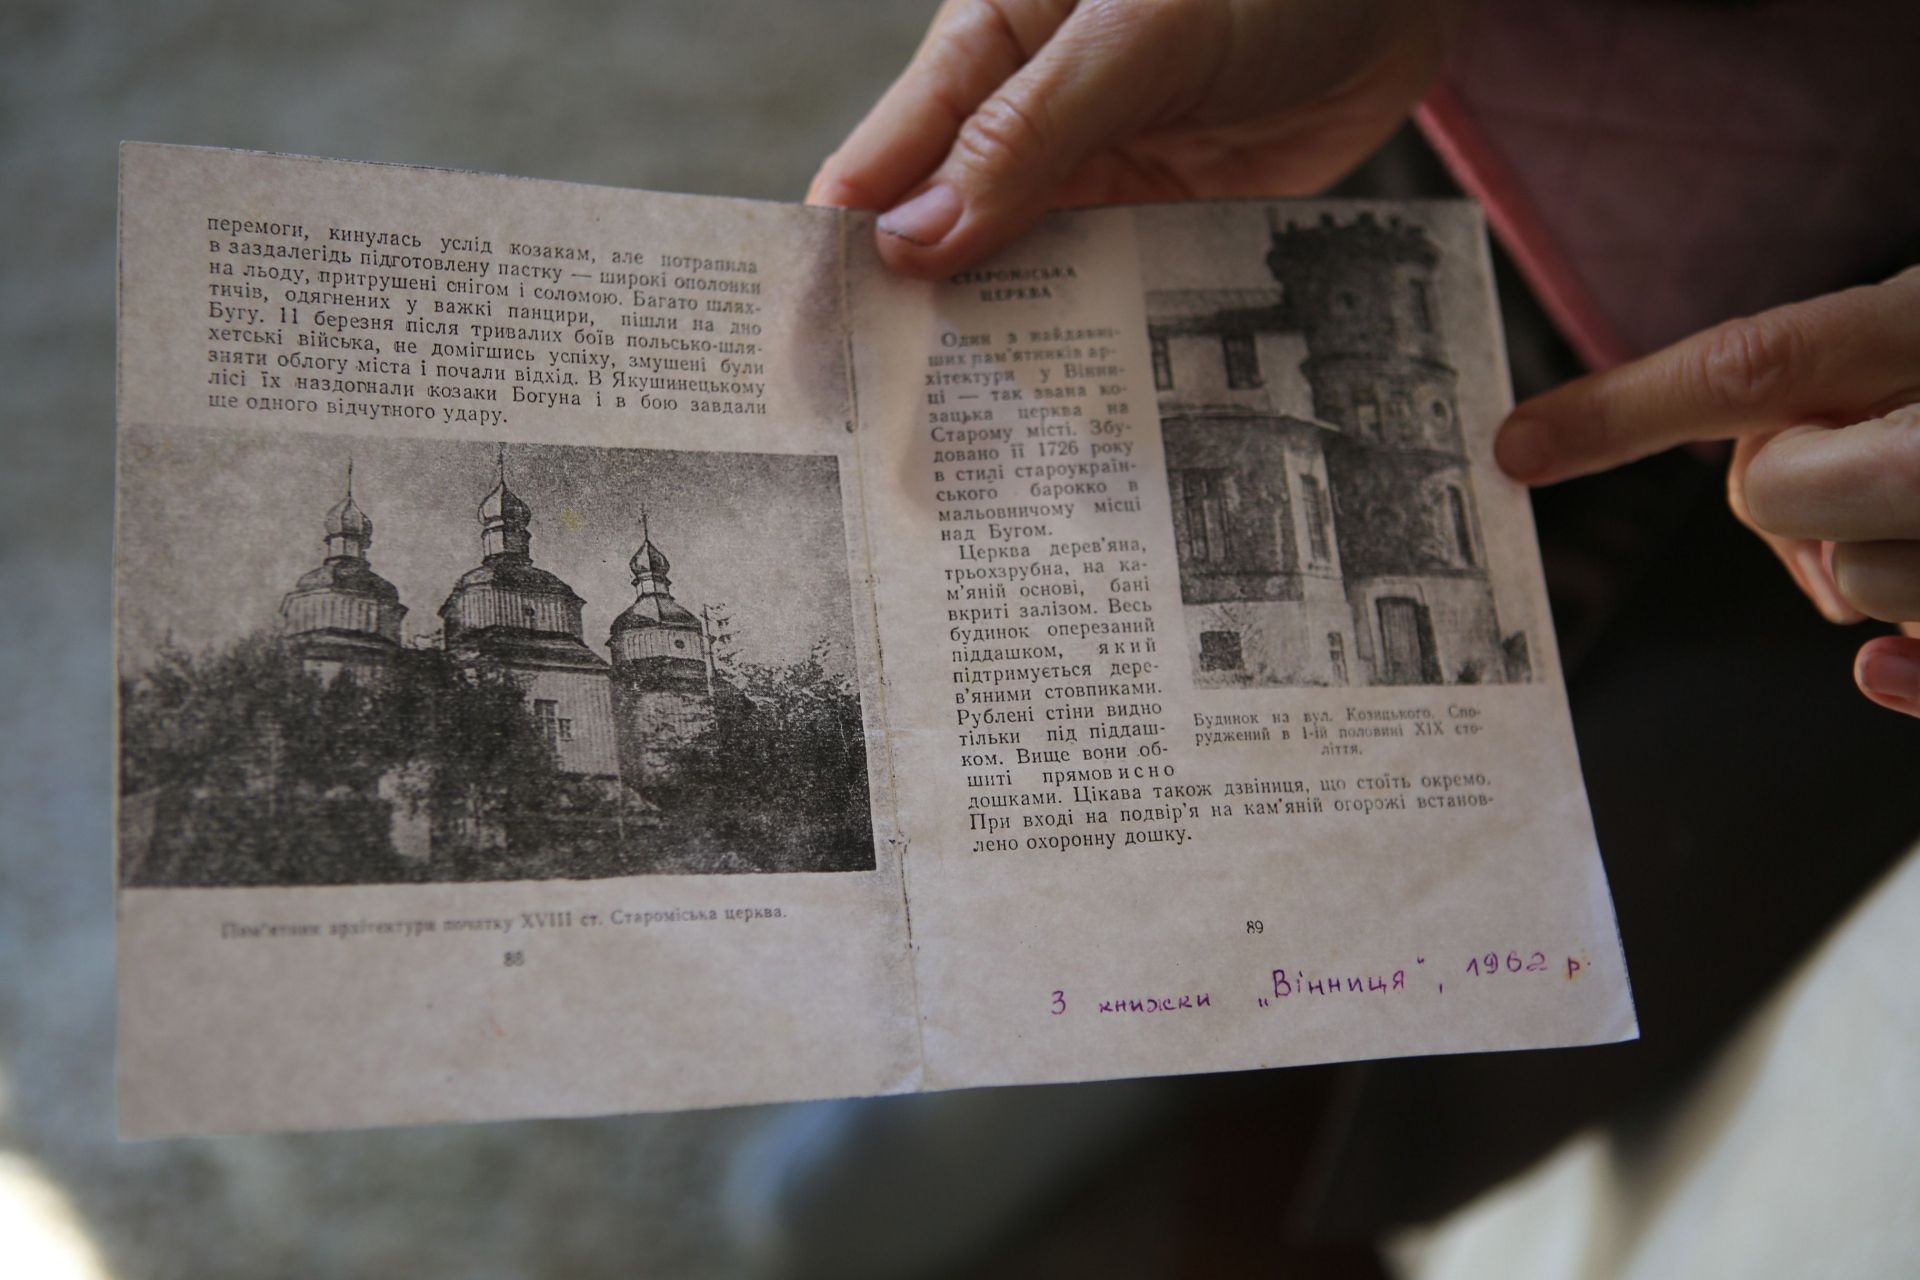 перемоги, кинулась услід козакам, але потрапила
в заздалегідь підготовлену пастку — широкі ополонки
на льоду, притрушені снігом і соломою. Багато шлях-
тичів, одягнених у важкі панцири, пішли на дно
Бугу. 11 березня після тривалих боїв польсько-шля-
хетські війська, не домігшись успіху, змушені були
зняти облогу міста і почали відхід. В Якушинецькому
лісі їх наздогнали козаки Богуна і в бою завдали
ще одного відчутного удару.
Пам'ятник архітектури початку XVIII ст. Староміська церква.
88
СТАРОМІСЬКА
ЦЕРКВА
Один з найдавні-
ших пам'ятників ар-
хітектури у Вінни-
ці — так звана ко-
зацька церква на
Старому місті. Збу-
довано її 1726 року
в стилі староукраїн-
ського барокко в
мальовничому місці
над Бугом.
Церква дерев'яна,
трьохзрубна, на ка-
м'яній основі, бані
вкриті залізом. Весь
будинок оперезаний
піддашком, який
підтримується дере-
в'яними стовпиками.
Рублені стіни видно
тільки під піддаш-
ком. Вище вони об-
шиті прямовисно
дошками. Цікава також дзвіниця, що стоїть окремо.
При вході на подвір'я на кам'яній огорожі встанов-
лено охоронну дошку.
Будинок на вул. Козицького. Спо-
руджений в 1-ій половині XIX сто-
ліття.
89
З книжки „Вінниця", 1962 р.